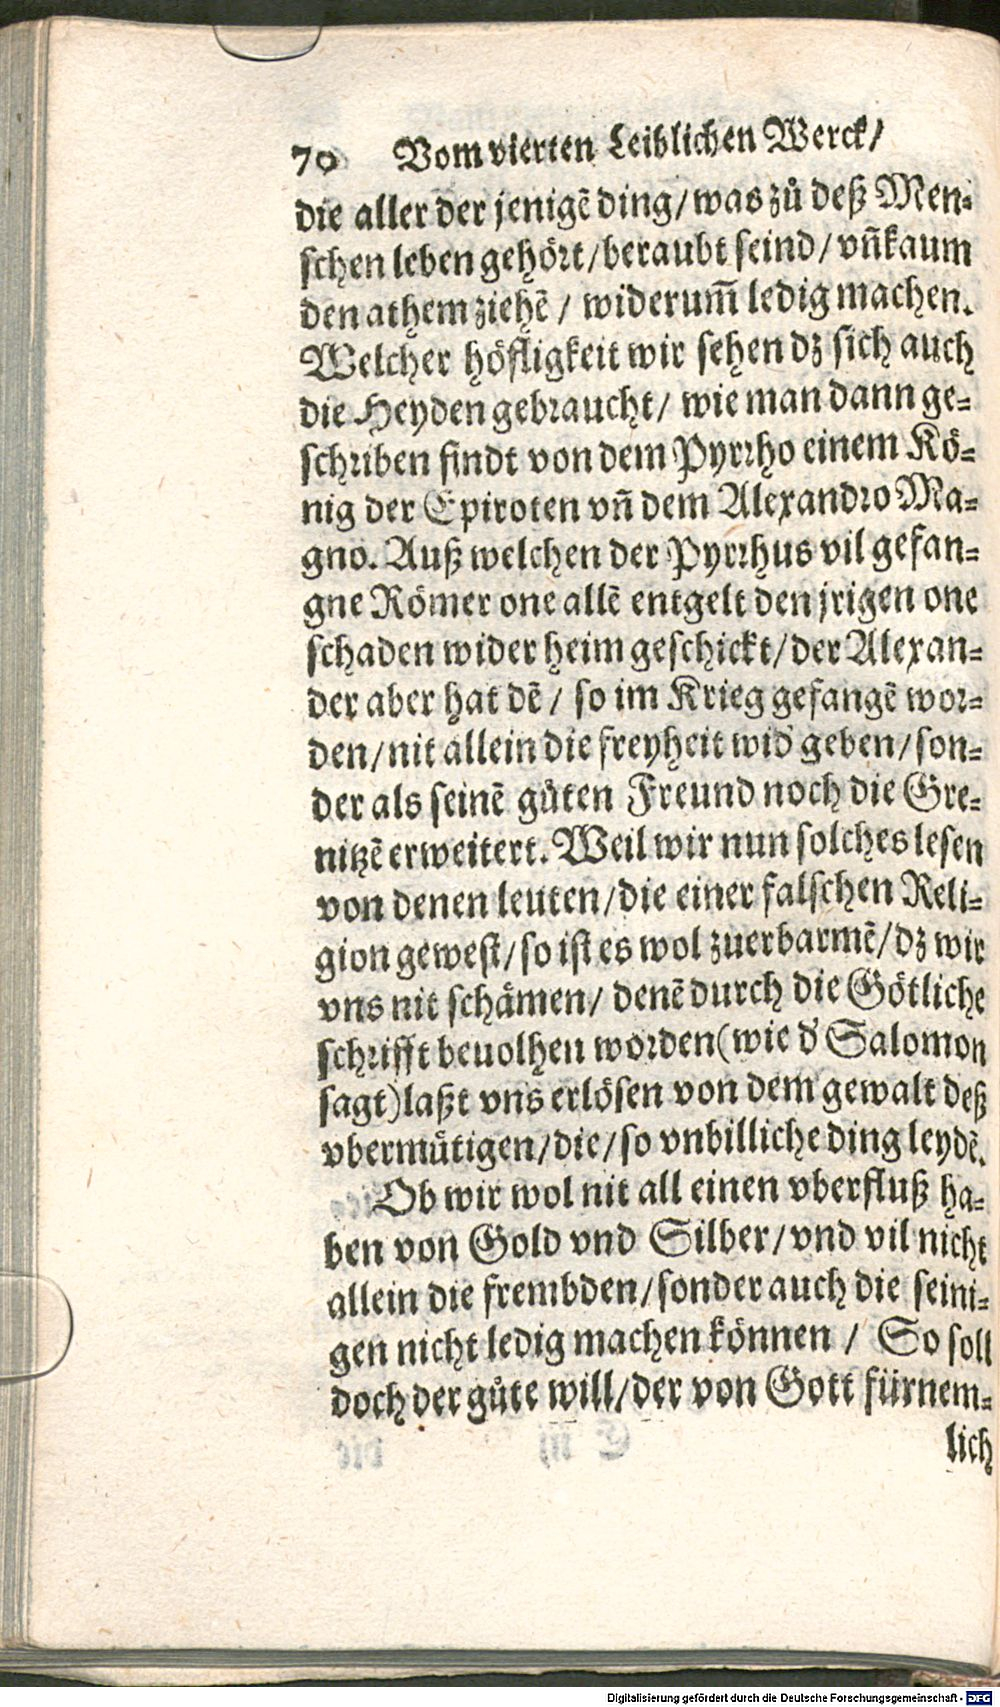 70 Vom vierten Leiblichen Werck/
die aller der jenigē ding/was zů deß Men-
schen leben gehört/beraubt seind/vñ kaum
den athem ziehē/ widerum̃ ledig machen.
Welcher höfligkeit wir sehen dz sich auch
die Heyden gebraucht/ wie man dann ge-
schriben findt von dem Pyrrho einem Kö-
nig der Epiroten vñ dem Alexandro Ma-
gno. Auß welchen der Pyrrhus vil gefan-
gne Römer one allē entgelt den jrigen one
schaden wider heim geschickt/der Alexan-
der aber hat dē/ so im Krieg gefangē wor-
den/nit allein die freyheit wid' geben/son-
der als seinē gůten Freund noch die Gre-
nitzē erweitert. Weil wir nun solches lesen
von denen leuten/die einer falschen Reli-
gion gewest/so ist es wol zuerbarmē/dz wir
vns nit schämen/ denē durch die Götliche
schrifft beuolhen worden(wie d' Salomon
sagt)laßt vns erlösen von dem gewalt deß
vbermütigen/die/so vnbilliche ding leydē.
Ob wir wol nit all einen vberfluß ha-
ben von Gold vnd Silber/vnd vil nicht
allein die frembden/sonder auch die seini-
gen nicht ledig machen können / So soll
doch der gůte will/der von Gott fürnem-
lich
Digitalisierung gefördert durch die Deutsche Forschungsgemeinschaft - DFG